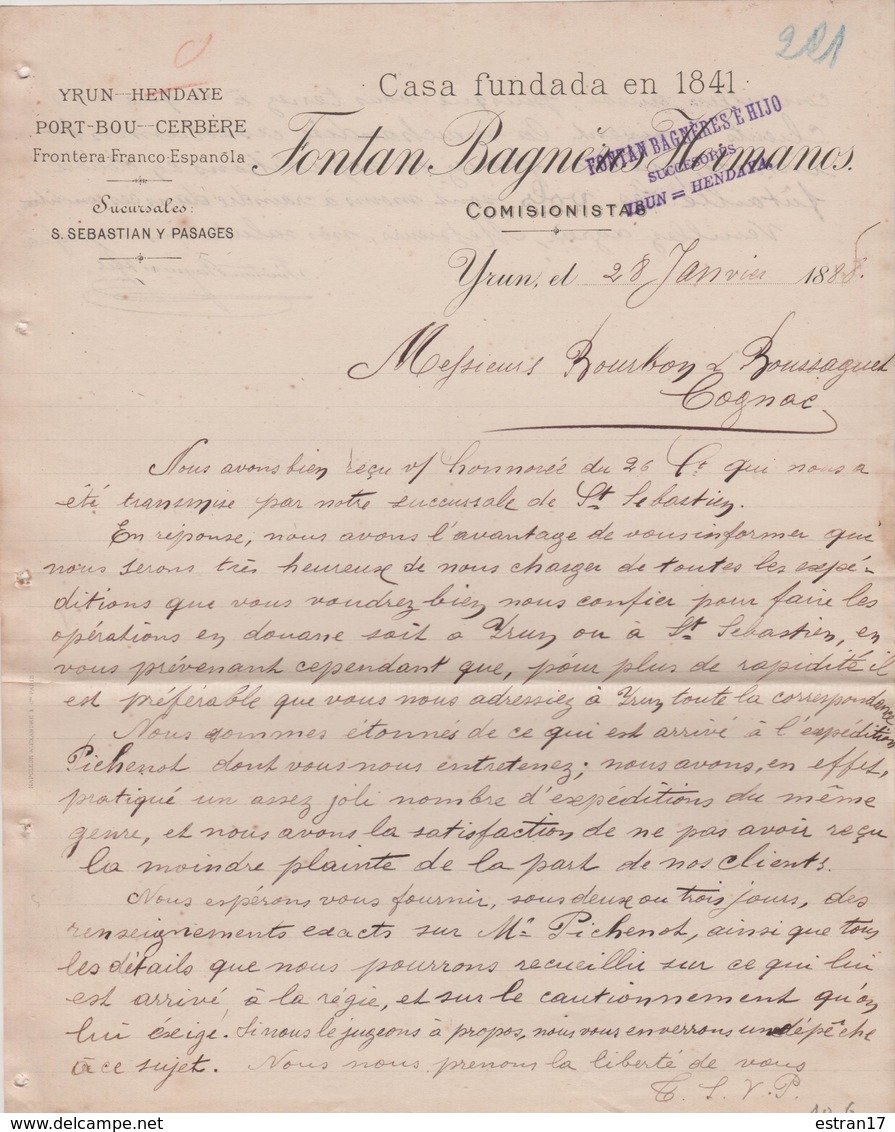 281
YRUN-HENDAYE
PORT-BOU-CERBÈRE
Frontera-Franco-Espanõla
Sucursales:
S. SEBASTIAN Y PASAGES
Casa fundada en 1841
Fontan Bagnéres Hermanos.
COMISIONISTAS
FONTAN BAGNÈRES É HIJO
SUCCESORES
IRUN = HENDAYA
Yrun, el 28 Janvier 1888.
Messieurs Bourbon & Boussaguet
Cognac
Nous avons bien reçu v/ honnorée du 26 Ct qui nous a
été transmise par notre succussale de St Sebastien.
En réponse, nous avons l'avantage de vous informer que
nous serons très heureux de nous charger de toutes les expé-
ditions que vous voudrez bien nous confier pour faire les
opérations en douane soit a Yrun ou à St Sebastien, en
vous prévenant cependant que, pour plus de rapidité il
est préférable que vous nous adressiez à Yrun toute la correspondence
Nous sommes étonnés de ce qui est arrivé à l'expédition
Pichenot dont vous nous entretenez; nous avons, en effet,
pratiqué un assez joli nombre d'expéditions du même
genre, et nous avons la satisfaction de ne pas avoir reçu
la moindre plainte de la part de nos clients.
Nous espérons vous fournir, sous deux ou trois jours, des
renseignements exacts sur Mr Pichenot, ainsi que tous
les détails que nous pourrons recueillir sur ce qui lui
est arrivé à la régie, et sur le cautionnement qu'on
lui éxigé. Si nous le jugeons à propos, nous vous enverrons un dépêche
à ce sujet. Nous nous prenons la liberté de vous
T. S. V. P.
www.delcampe.net
estran17